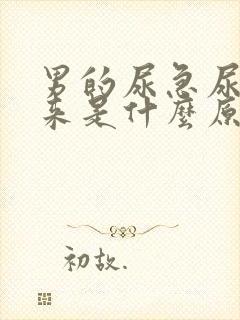 男的尿急尿
来是什麼原
初故.